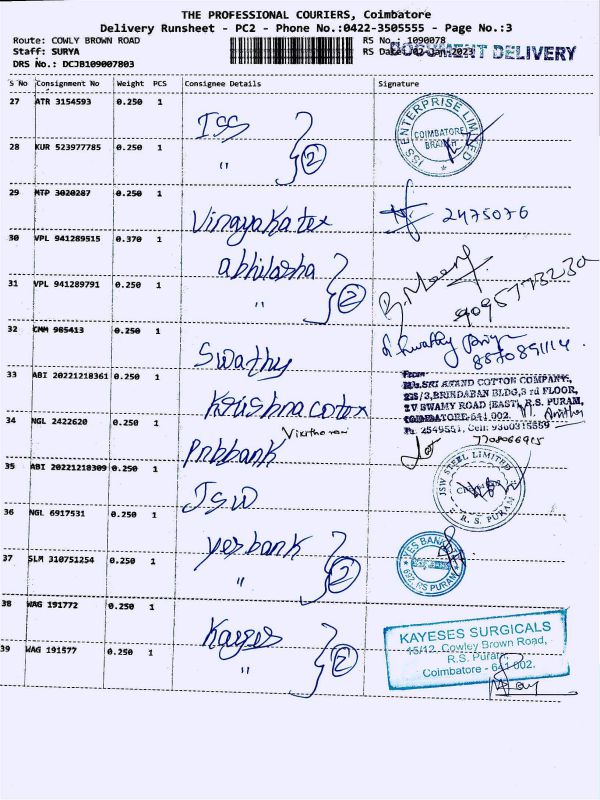 THE PROFESSIONAL COURIERS, Coimbatore
Delivery Runsheet - PC2 - Phone No.:0422-3505555 - Page No.:3
Route: COWLY BROWN ROAD
RS No.: 1090078
Staff: SURYA
RS Date: 02-Jan-2023
DOCUMENT DELIVERY
DRS No.: DCJB109007803
S No Consignment No Weight PCS Consignee Details Signature
27 ATR 3154593 0.250 1 ISS
ISS ENTERPRISE LIMITED COIMBATORE BRANCH
28 KUR 523977785 0.250 1 " 2
29 MTP 3020287 0.250 1 Vinayakatex 2475076
30 VPL 941289515 0.370 1 abhilasha
31 VPL 941289791 0.250 1 " 2
32 CMM 985413 0.250 1 Swathy
8870891114
33 ABI 20221218361 0.250 1 Krishna cotex
From
M/s.SRI ANAND COTTON COMPANY,
BRINDABAN BLDG,3 rd FLOOR,
SWAMY ROAD (EAST), R.S. PURAM,
COIMBATORE-641 002.
34 NGL 2422620 0.250 1 Pnbbank
35 ABI 20221218309 0.250 1 JSW
JSW STEEL LIMITED R.S. PURAM
36 NGL 6917531 0.250 1 yesbank
YES BANK RS PURAM
37 SLM 310751254 0.250 1 " 2
38 WAG 191772 0.250 1
39 WAG 191577 0.250 1 " 2
KAYESES SURGICALS
15/12, Cowley Brown Road,
R.S. Puram,
Coimbatore - 641 002.